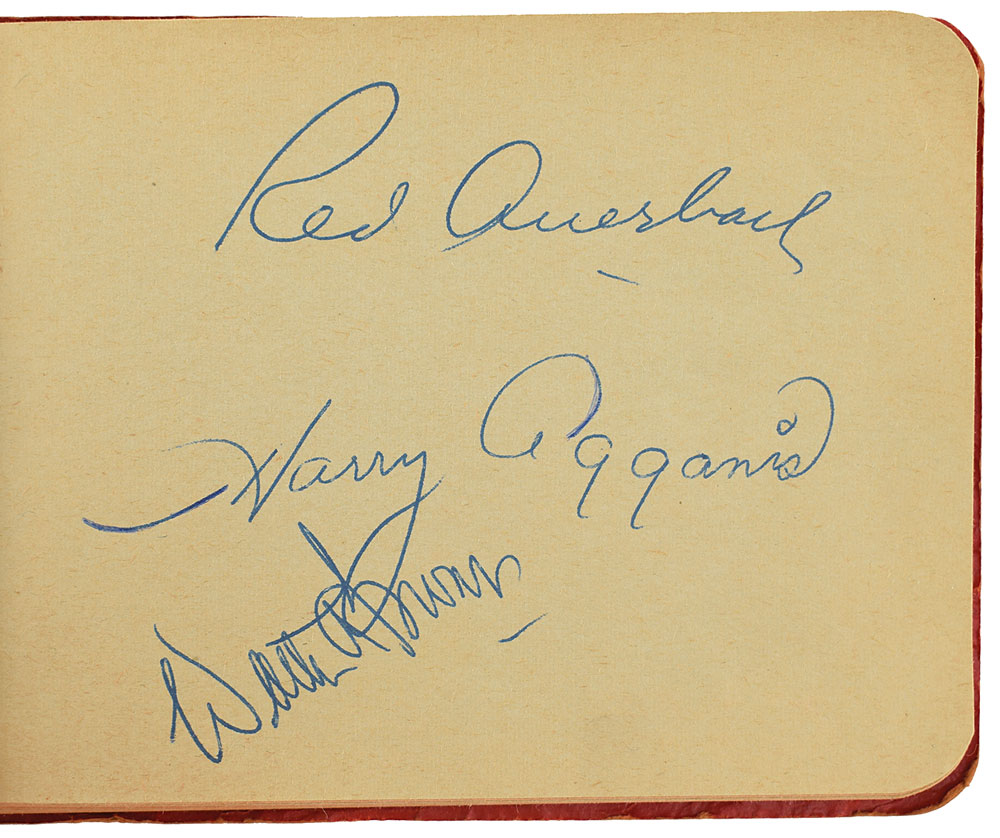 Red Auerbach
Harry Agganis
Walter A Brown